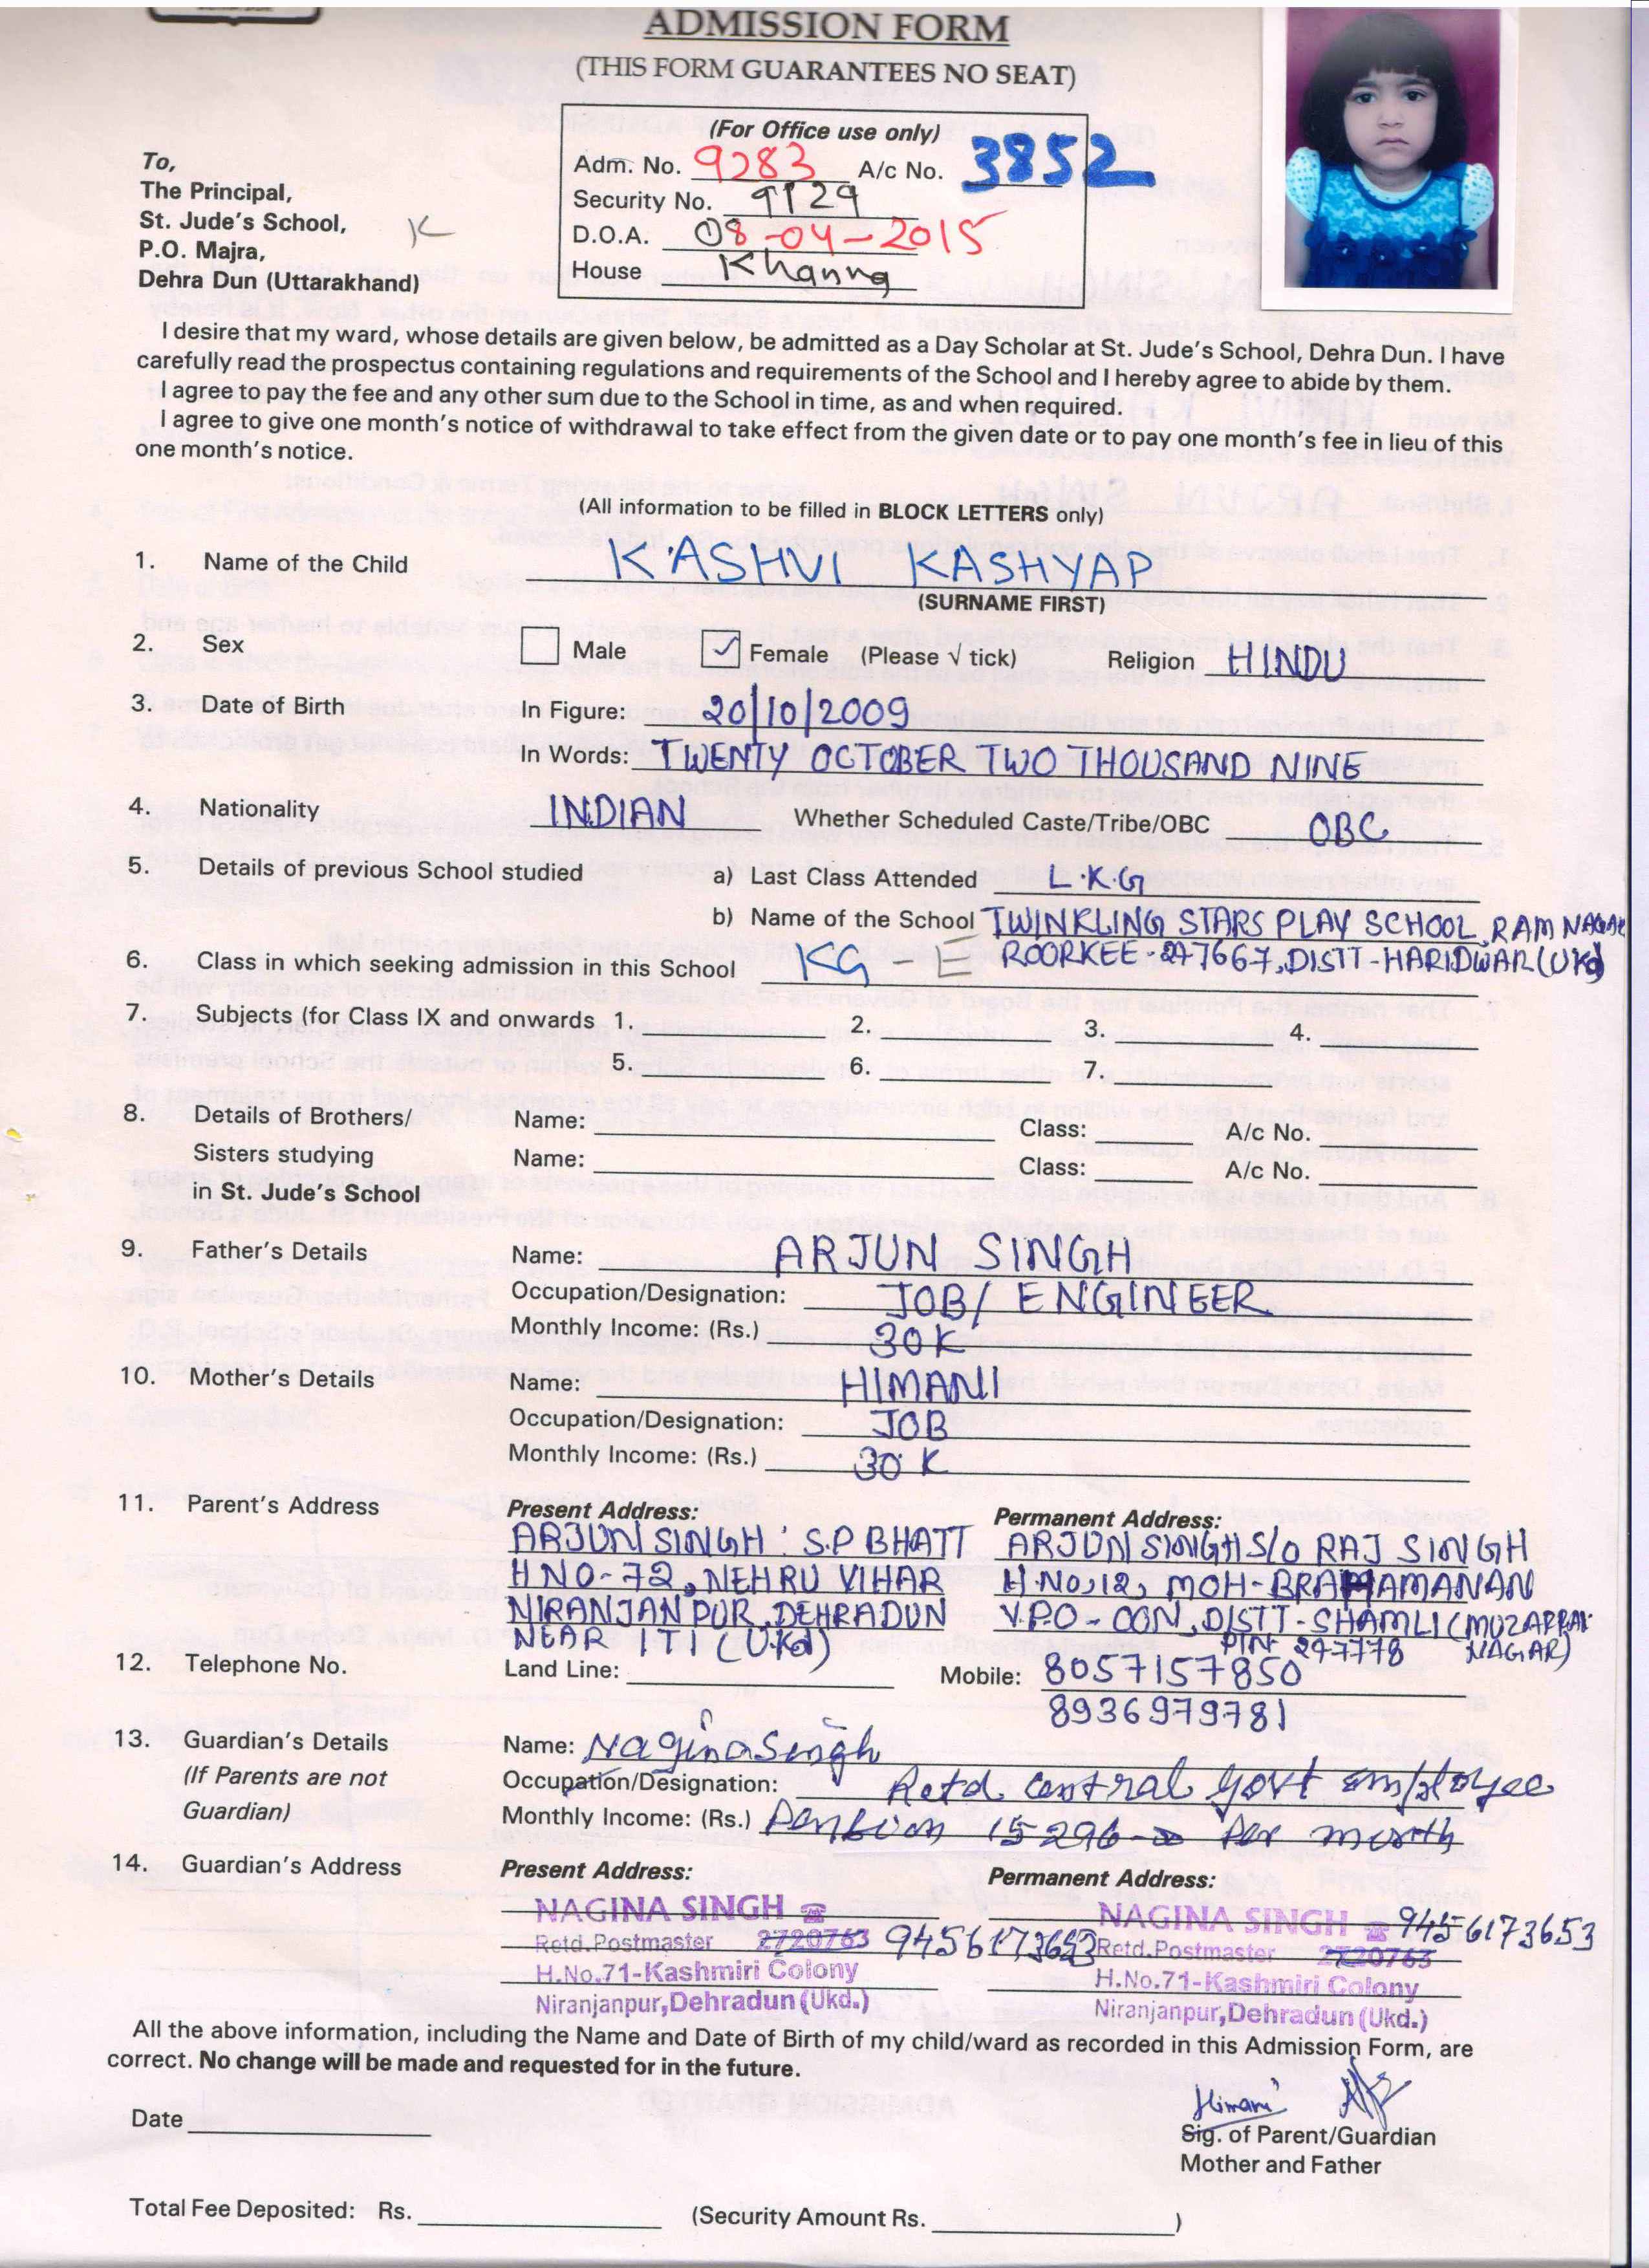 ADMISSION FORM
(THIS FORM GUARANTEES NO SEAT)
(For Office use only)
Adm. No. 9283 A/c No. 3852
Security No. 9129
D.O.A. 08-04-2015
House Khanna
To,
The Principal,
St. Jude's School,
P.O. Majra,
Dehra Dun (Uttarakhand)
K
I desire that my ward, whose details are given below, be admitted as a Day Scholar at St. Jude's School, Dehra Dun. I have
carefully read the prospectus containing regulations and requirements of the School and I hereby agree to abide by them.
I agree to pay the fee and any other sum due to the School in time, as and when required.
I agree to give one month's notice of withdrawal to take effect from the given date or to pay one month's fee in lieu of this
one month's notice.
(All information to be filled in BLOCK LETTERS only)
1. Name of the Child KASHVI KASHYAP
(SURNAME FIRST)
2. Sex Male ✓ Female (Please √ tick) Religion HINDU
3. Date of Birth In Figure: 20/10/2009
In Words: TWENTY OCTOBER TWO THOUSAND NINE
4. Nationality INDIAN Whether Scheduled Caste/Tribe/OBC OBC
5. Details of previous School studied a) Last Class Attended L.K.G
b) Name of the School TWINKLING STARS PLAY SCHOOL, RAM NAGAR
ROORKEE-247667, DISTT-HARIDWAR (UKd)
6. Class in which seeking admission in this School KG E
7. Subjects (for Class IX and onwards 1. 2. 3. 4.
5. 6. 7.
8. Details of Brothers/ Name: Class: A/c No.
Sisters studying Name: Class: A/c No.
in St. Jude's School
9. Father's Details Name: ARJUN SINGH
Occupation/Designation: JOB/ ENGINEER
Monthly Income: (Rs.) 30K
10. Mother's Details Name: HIMANI
Occupation/Designation: JOB
Monthly Income: (Rs.) 30 K
11. Parent's Address Present Address: Permanent Address:
ARJUN SINGH S.P BHATT ARJUN SINGH S/O RAJ SINGH
H NO-72, NEHRU VIHAR H.NO.12, MOH-BRAHAMANAN
NIRANJANPUR, DEHRADUN V.P.O-OON, DISTT-SHAMLI (MUZAFFAR
NEAR ITI (UKd) PIN 247778 NAGAR)
12. Telephone No. Land Line: Mobile: 8057157850
8936979781
13. Guardian's Details Name: Nagina Singh
(If Parents are not Occupation/Designation: Retd central govt employee
Guardian) Monthly Income: (Rs.) Pension 15296-00 Per month
14. Guardian's Address Present Address: Permanent Address:
NAGINA SINGH ☎ NAGINA SINGH ☎ 9456173653
Retd.Postmaster 2720763 9456173653 Retd.Postmaster 2720763
H.No.71-Kashmiri Colony H.No.71-Kashmiri Colony
Niranjanpur,Dehradun (Ukd.) Niranjanpur,Dehradun (Ukd.)
All the above information, including the Name and Date of Birth of my child/ward as recorded in this Admission Form, are
correct. No change will be made and requested for in the future.
Himani
Date Sig. of Parent/Guardian
Mother and Father
Total Fee Deposited: Rs. (Security Amount Rs. )